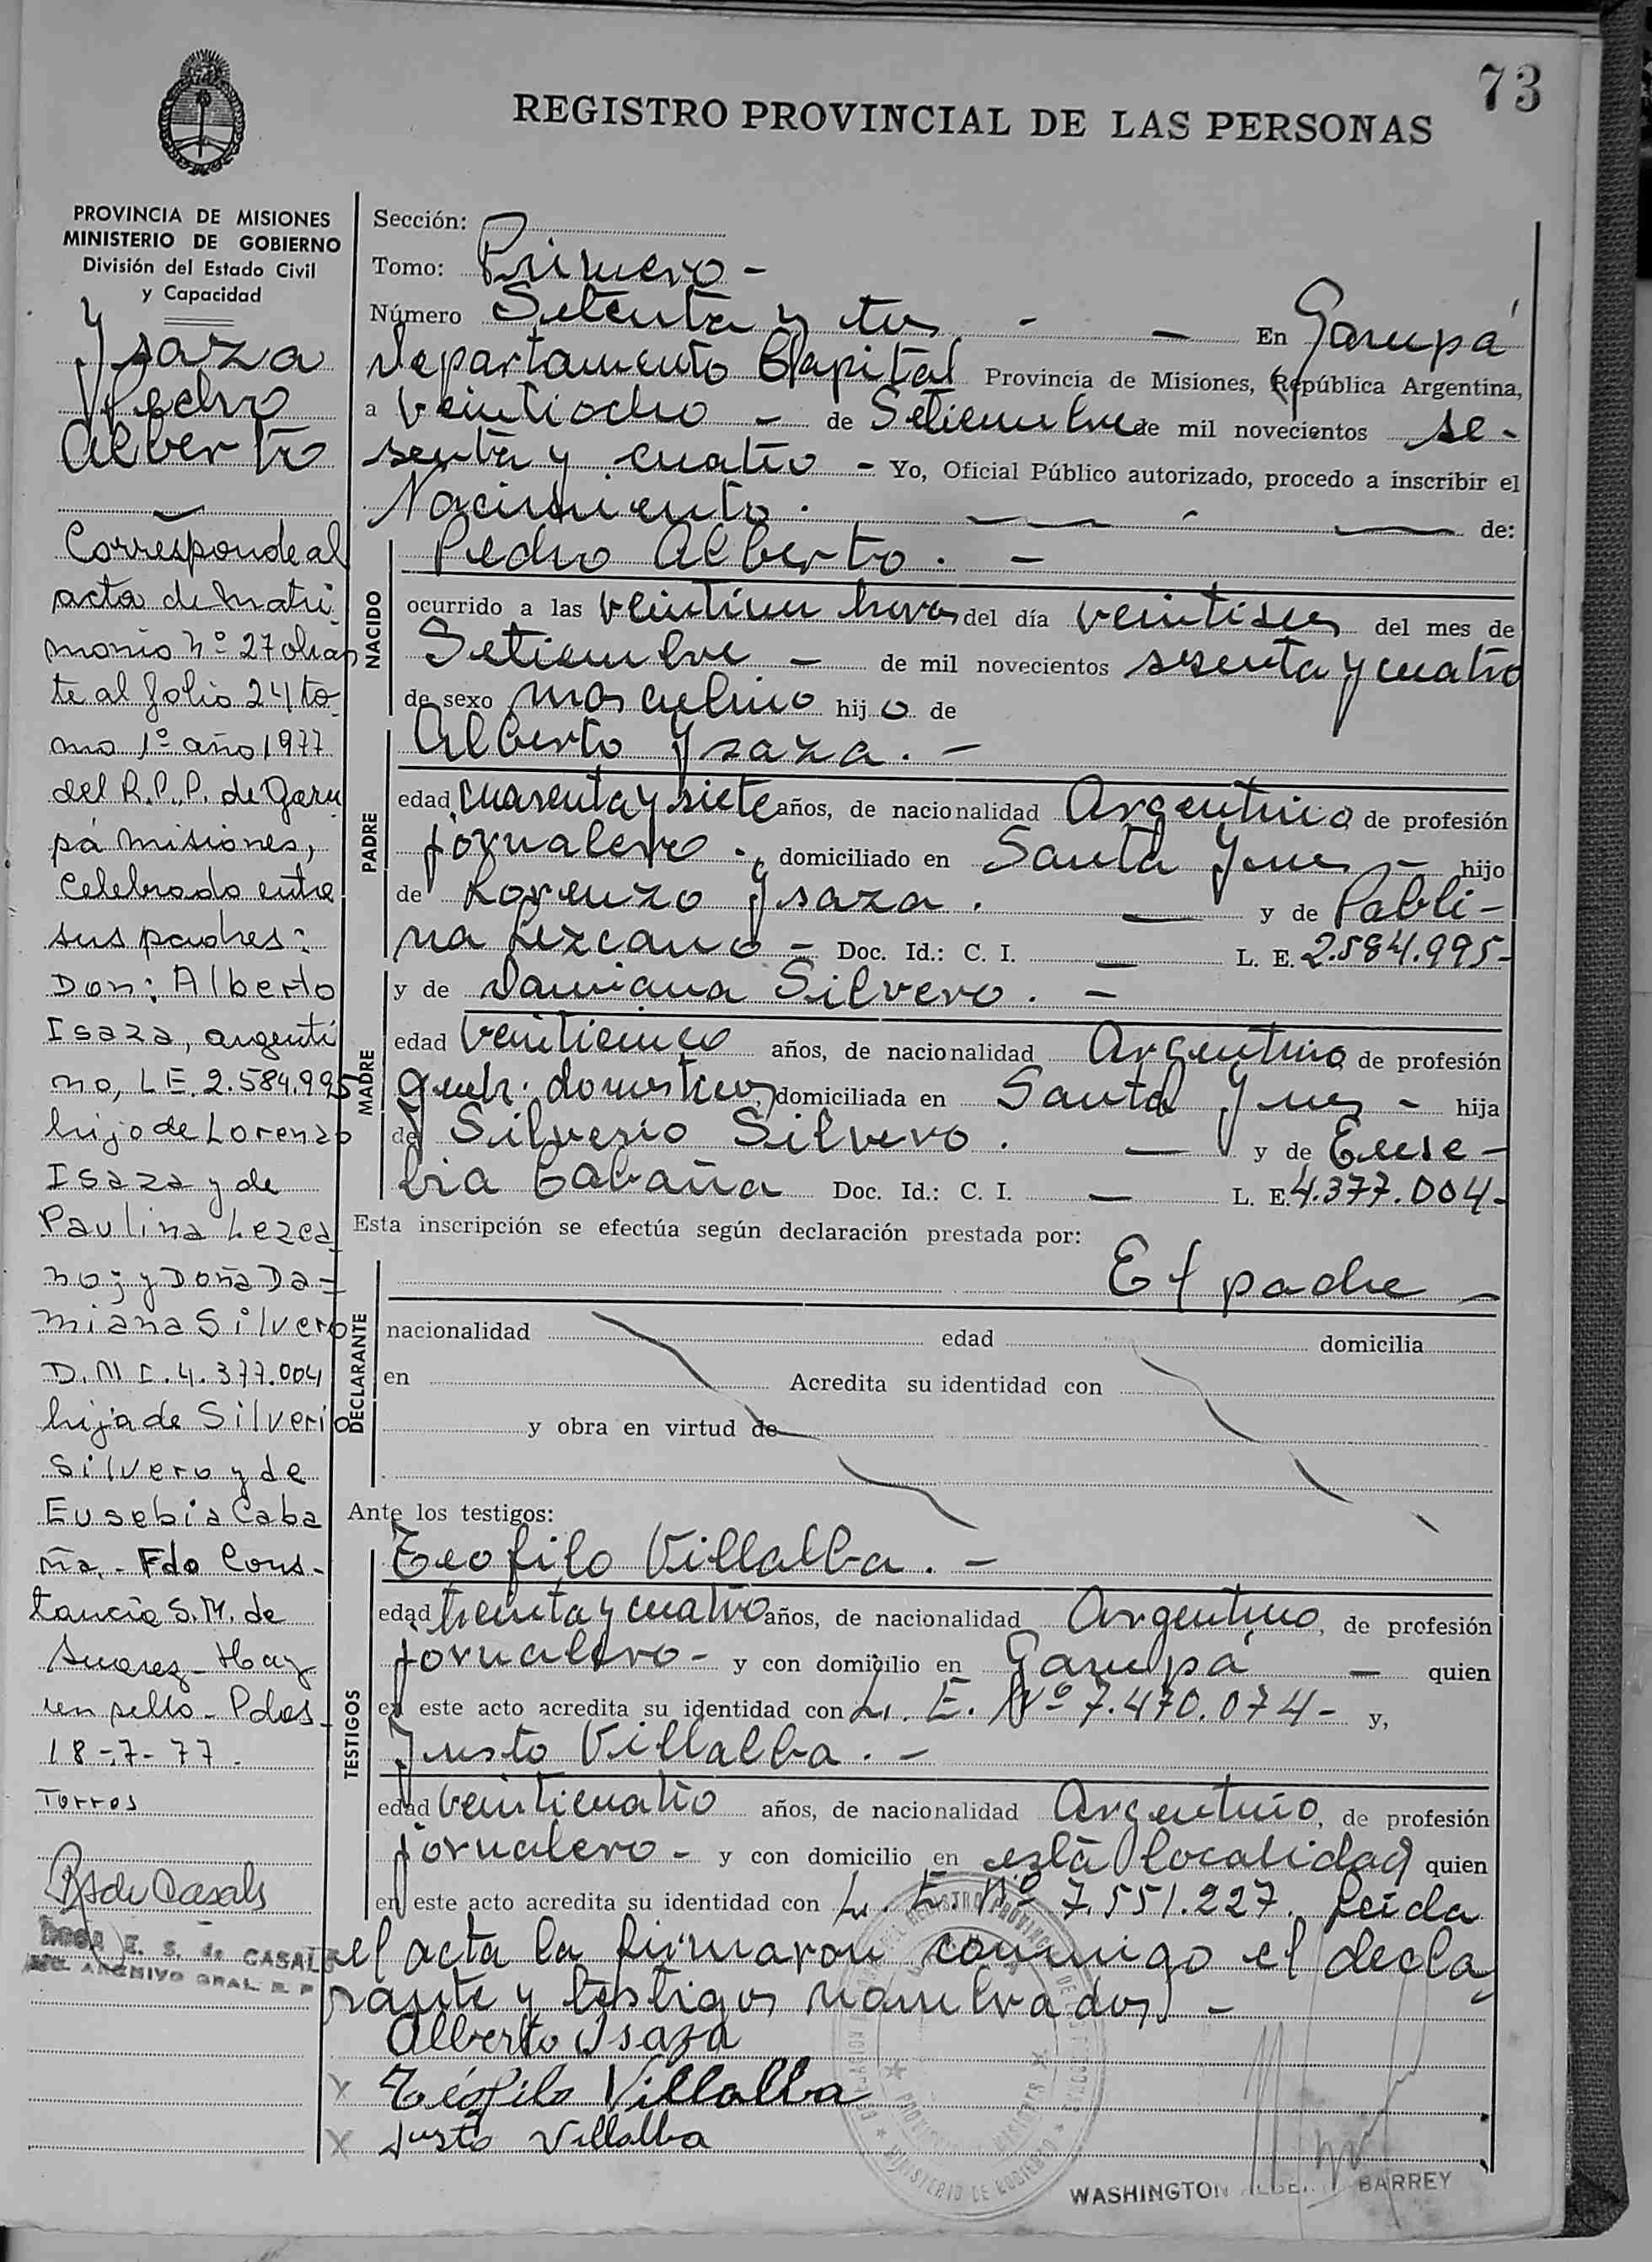 73
REGISTRO PROVINCIAL DE LAS PERSONAS
PROVINCIA DE MISIONES
MINISTERIO DE GOBIERNO
División del Estado Civil
y Capacidad
Ysaza
Pedro
Alberto
Corresponde al
acta de matri
monio nº 27 obran
te al folio 24 to
mo 1º año 1977
del R.P.P. de Garu
pá Misiones,
Celebrado entre
sus padres:
Don: Alberto
Isaza, argenti
no, L E. 2.584.995
hijo de Lorenzo
Isaza y de
Paulina Lezca
no; y Doña Da=
miana Silvero
D.N I. 4.377.004
hija de Silverio
Silvero y de
Eusebia Caba
ña.- Fdo Cons-
tancia S.M. de
Suarez - Hay
un sello - Pdas
18-7-77.
Torres
E. S. de CASALS
ARCHIVO GRAL. R. P.
Sección:
Tomo: Primero -
Número Setenta y tres - — En Garupá
Departamento Capital Provincia de Misiones, República Argentina,
a veintiocho - de Setiembre de mil novecientos se-
senta y cuatro - Yo, Oficial Público autorizado, procedo a inscribir el
Nacimiento. — — - — de:
NACIDO
Pedro Alberto. -
ocurrido a las veintiun horas del día veintiseis del mes de
Setiembre - de mil novecientos sesenta y cuatro
de sexo masculino hijo de
PADRE
Alberto Ysaza. -
edad cuarenta y siete años, de nacionalidad Argentina de profesión
jornalero -, domiciliado en Santa Ynes - hijo
de Lorenzo Ysaza. — y de Pabli-
na Lezcano - Doc. Id.: C. I. — L. E. 2.584.995-
MADRE
y de Damiana Silvero. -
edad veinticinco años, de nacionalidad Argentina de profesión
queh. domesticos domiciliada en Santa Ynes - hija
de Silverio Silvero. — y de Euse-
bia Cabaña Doc. Id.: C. I. — L. E. 4.377.004-
Esta inscripción se efectúa según declaración prestada por:
DECLARANTE
El padre -
nacionalidad edad domicilia
en Acredita su identidad con
y obra en virtud de
Ante los testigos:
TESTIGOS
Teofilo Villalba. -
edad treinta y cuatro años, de nacionalidad Argentino, de profesión
jornalero - y con domicilio en Garupá — quien
en este acto acredita su identidad con L. E. Nº 7.470.074- y,
Justo Villalba. -
edad veinticuatro años, de nacionalidad Argentino, de profesión
jornalero - y con domicilio en esta localidad quien
en este acto acredita su identidad con L. E. Nº 7.551.227. Leida
el acta la firmaron conmigo el decla
rante y testigos nombrados -
Alberto Isaza
x Teófilo Villalba
x Justo Villalba
WASHINGTON BARREY